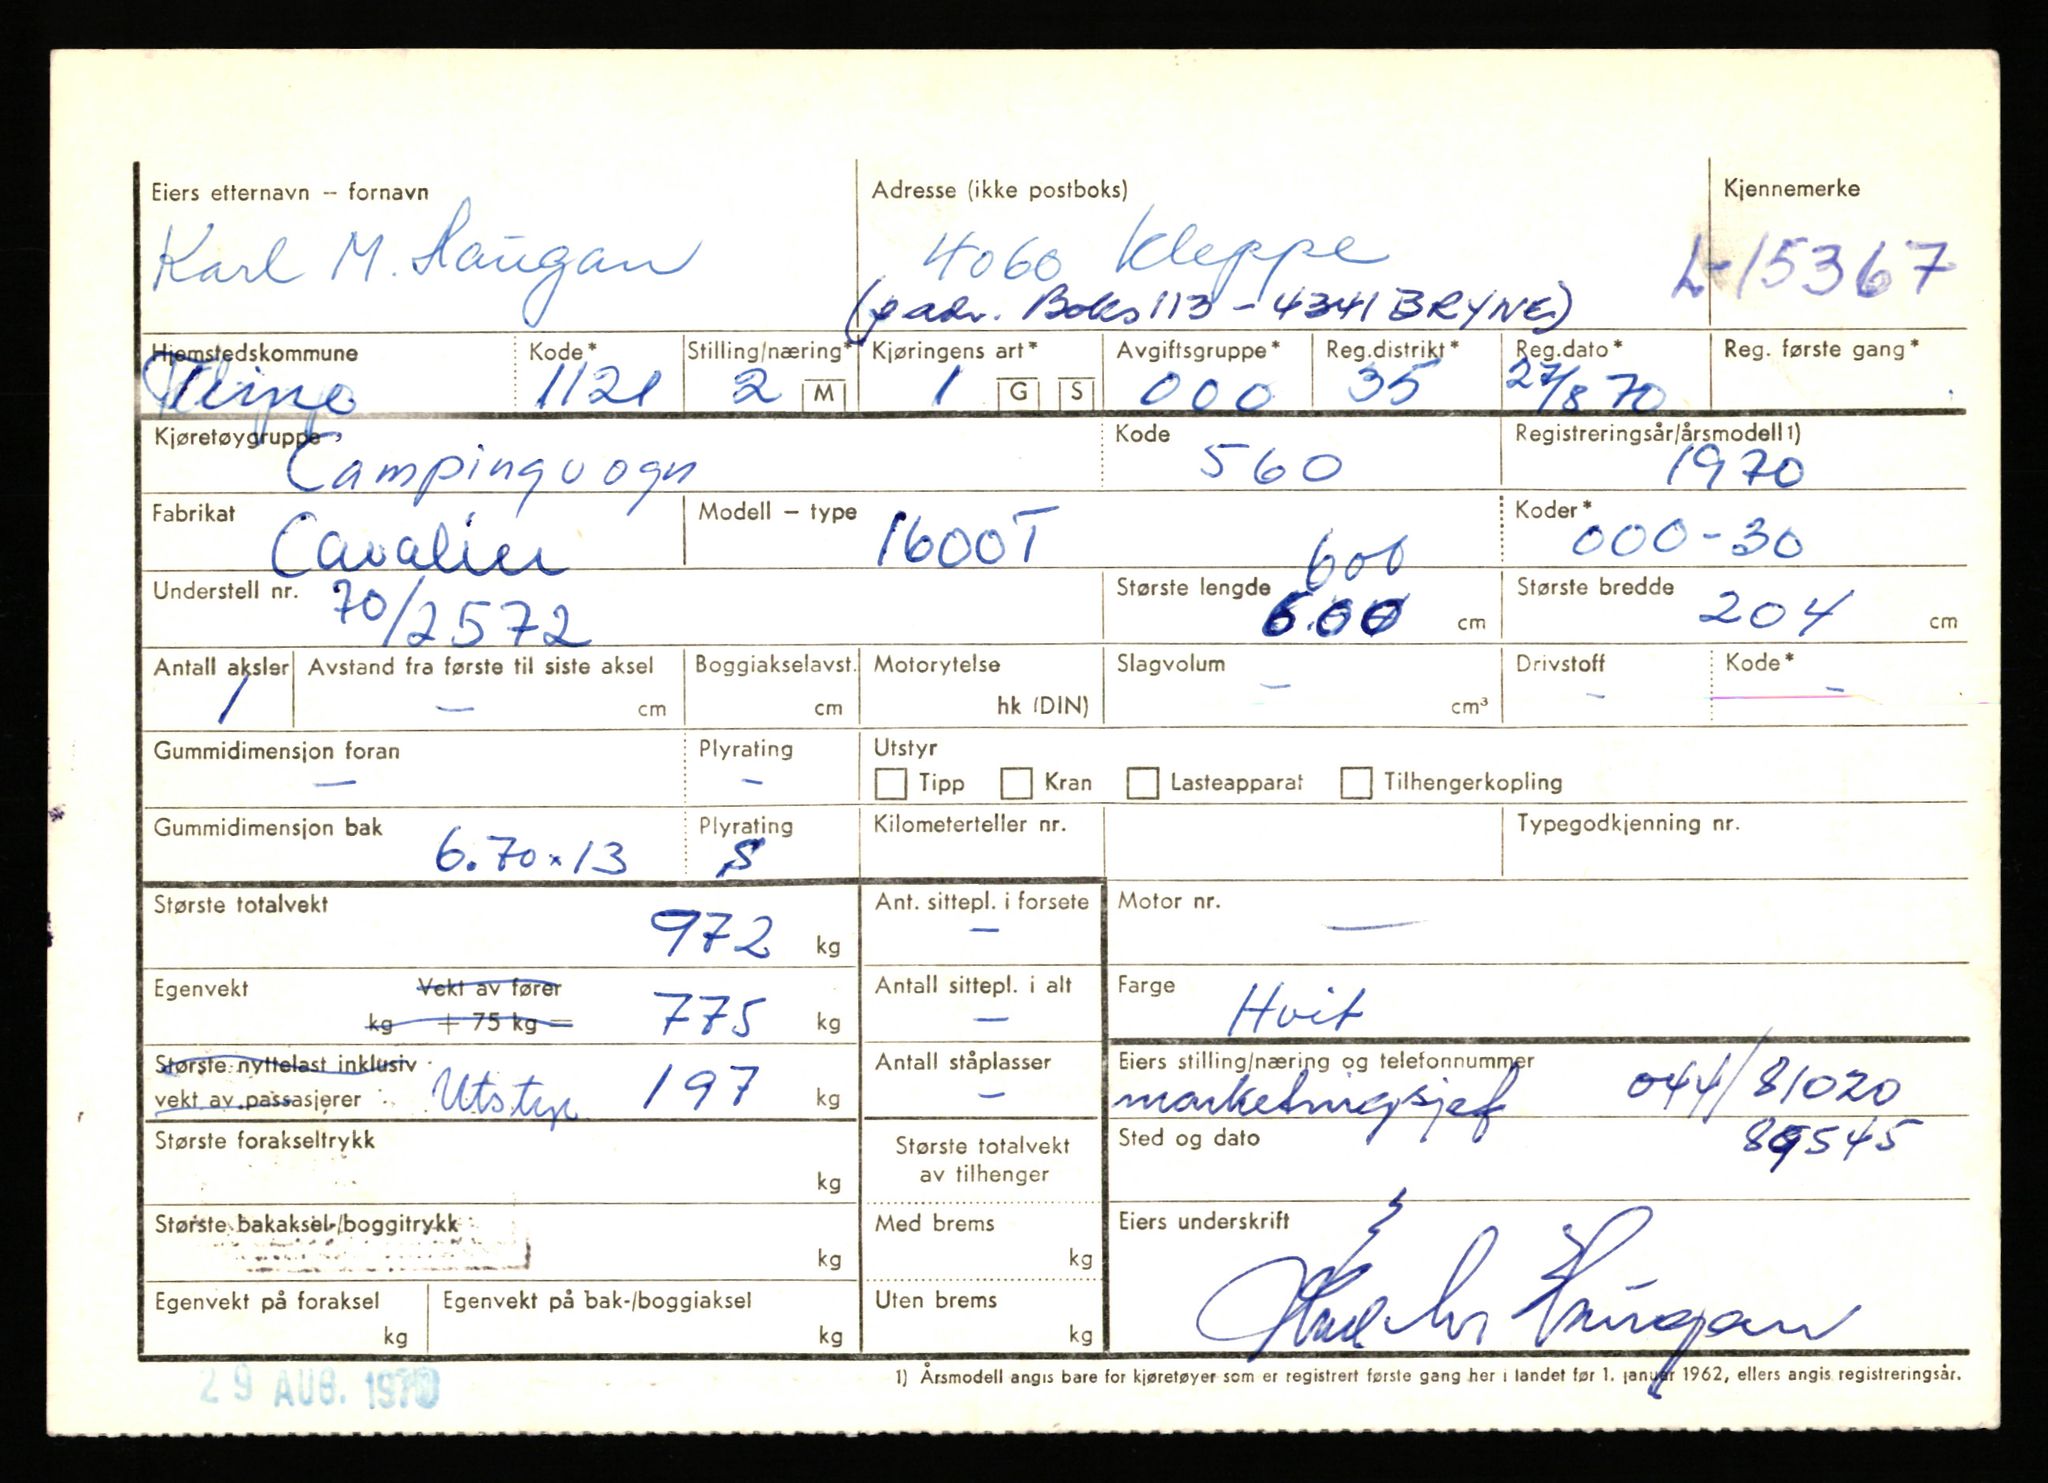 Eiers etternavn – fornavn
Karl M. Haugan
Adresse (ikke postboks)
4060 Kleppe
(p.adr. Boks 113 – 4341 BRYNE)
Kjennemerke
L-15367
Hjemstedskommune
Kode*
1121
Stilling/næring*
2 M
Kjøringens art*
1 G S
Avgiftsgruppe*
000
Reg.distrikt*
35
Reg.dato*
27/8 70
Reg. første gang*
Kjøretøygruppe
Campingvogn
Kode
560
Registreringsår/årsmodell 1)
1970
Fabrikat
Cavalier
Modell – type
1600T
Koder*
000-30
Understell nr.
70/2572
Største lengde
600
600 cm
Største bredde
204 cm
Antall aksler
1
Avstand fra første til siste aksel
– cm
Boggiakselavst.
cm
Motorytelse
hk (DIN)
Slagvolum
– cm³
Drivstoff
–
Kode*
–
Gummidimensjon foran
–
Plyrating
–
Utstyr
Tipp Kran Lasteapparat Tilhengerkopling
Gummidimensjon bak
6.70 x 13
Plyrating
Kilometerteller nr.
Typegodkjenning nr.
Største totalvekt
972 kg
Ant. sittepl. i forsete
–
Motor nr.
–
Egenvekt
Vekt av fører
kg + 75 kg =
775 kg
Antall sittepl. i alt
–
Farge
Hvit
Største nyttelast inklusiv
vekt av passasjerer
Utstyr 197 kg
Antall ståplasser
–
Eiers stilling/næring og telefonnummer
marketingsjef 044/81020
Største forakseltrykk
kg
Største totalvekt
av tilhenger
Sted og dato
89545
Største bakaksel-/boggitrykk
kg
Med brems
kg
Eiers underskrift
Karl M Haugan
Egenvekt på foraksel
kg
Egenvekt på bak-/boggiaksel
kg
Uten brems
kg
29 AUG. 1970
1) Årsmodell angis bare for kjøretøyer som er registrert første gang her i landet før 1. januar 1962, ellers angis registreringsår.